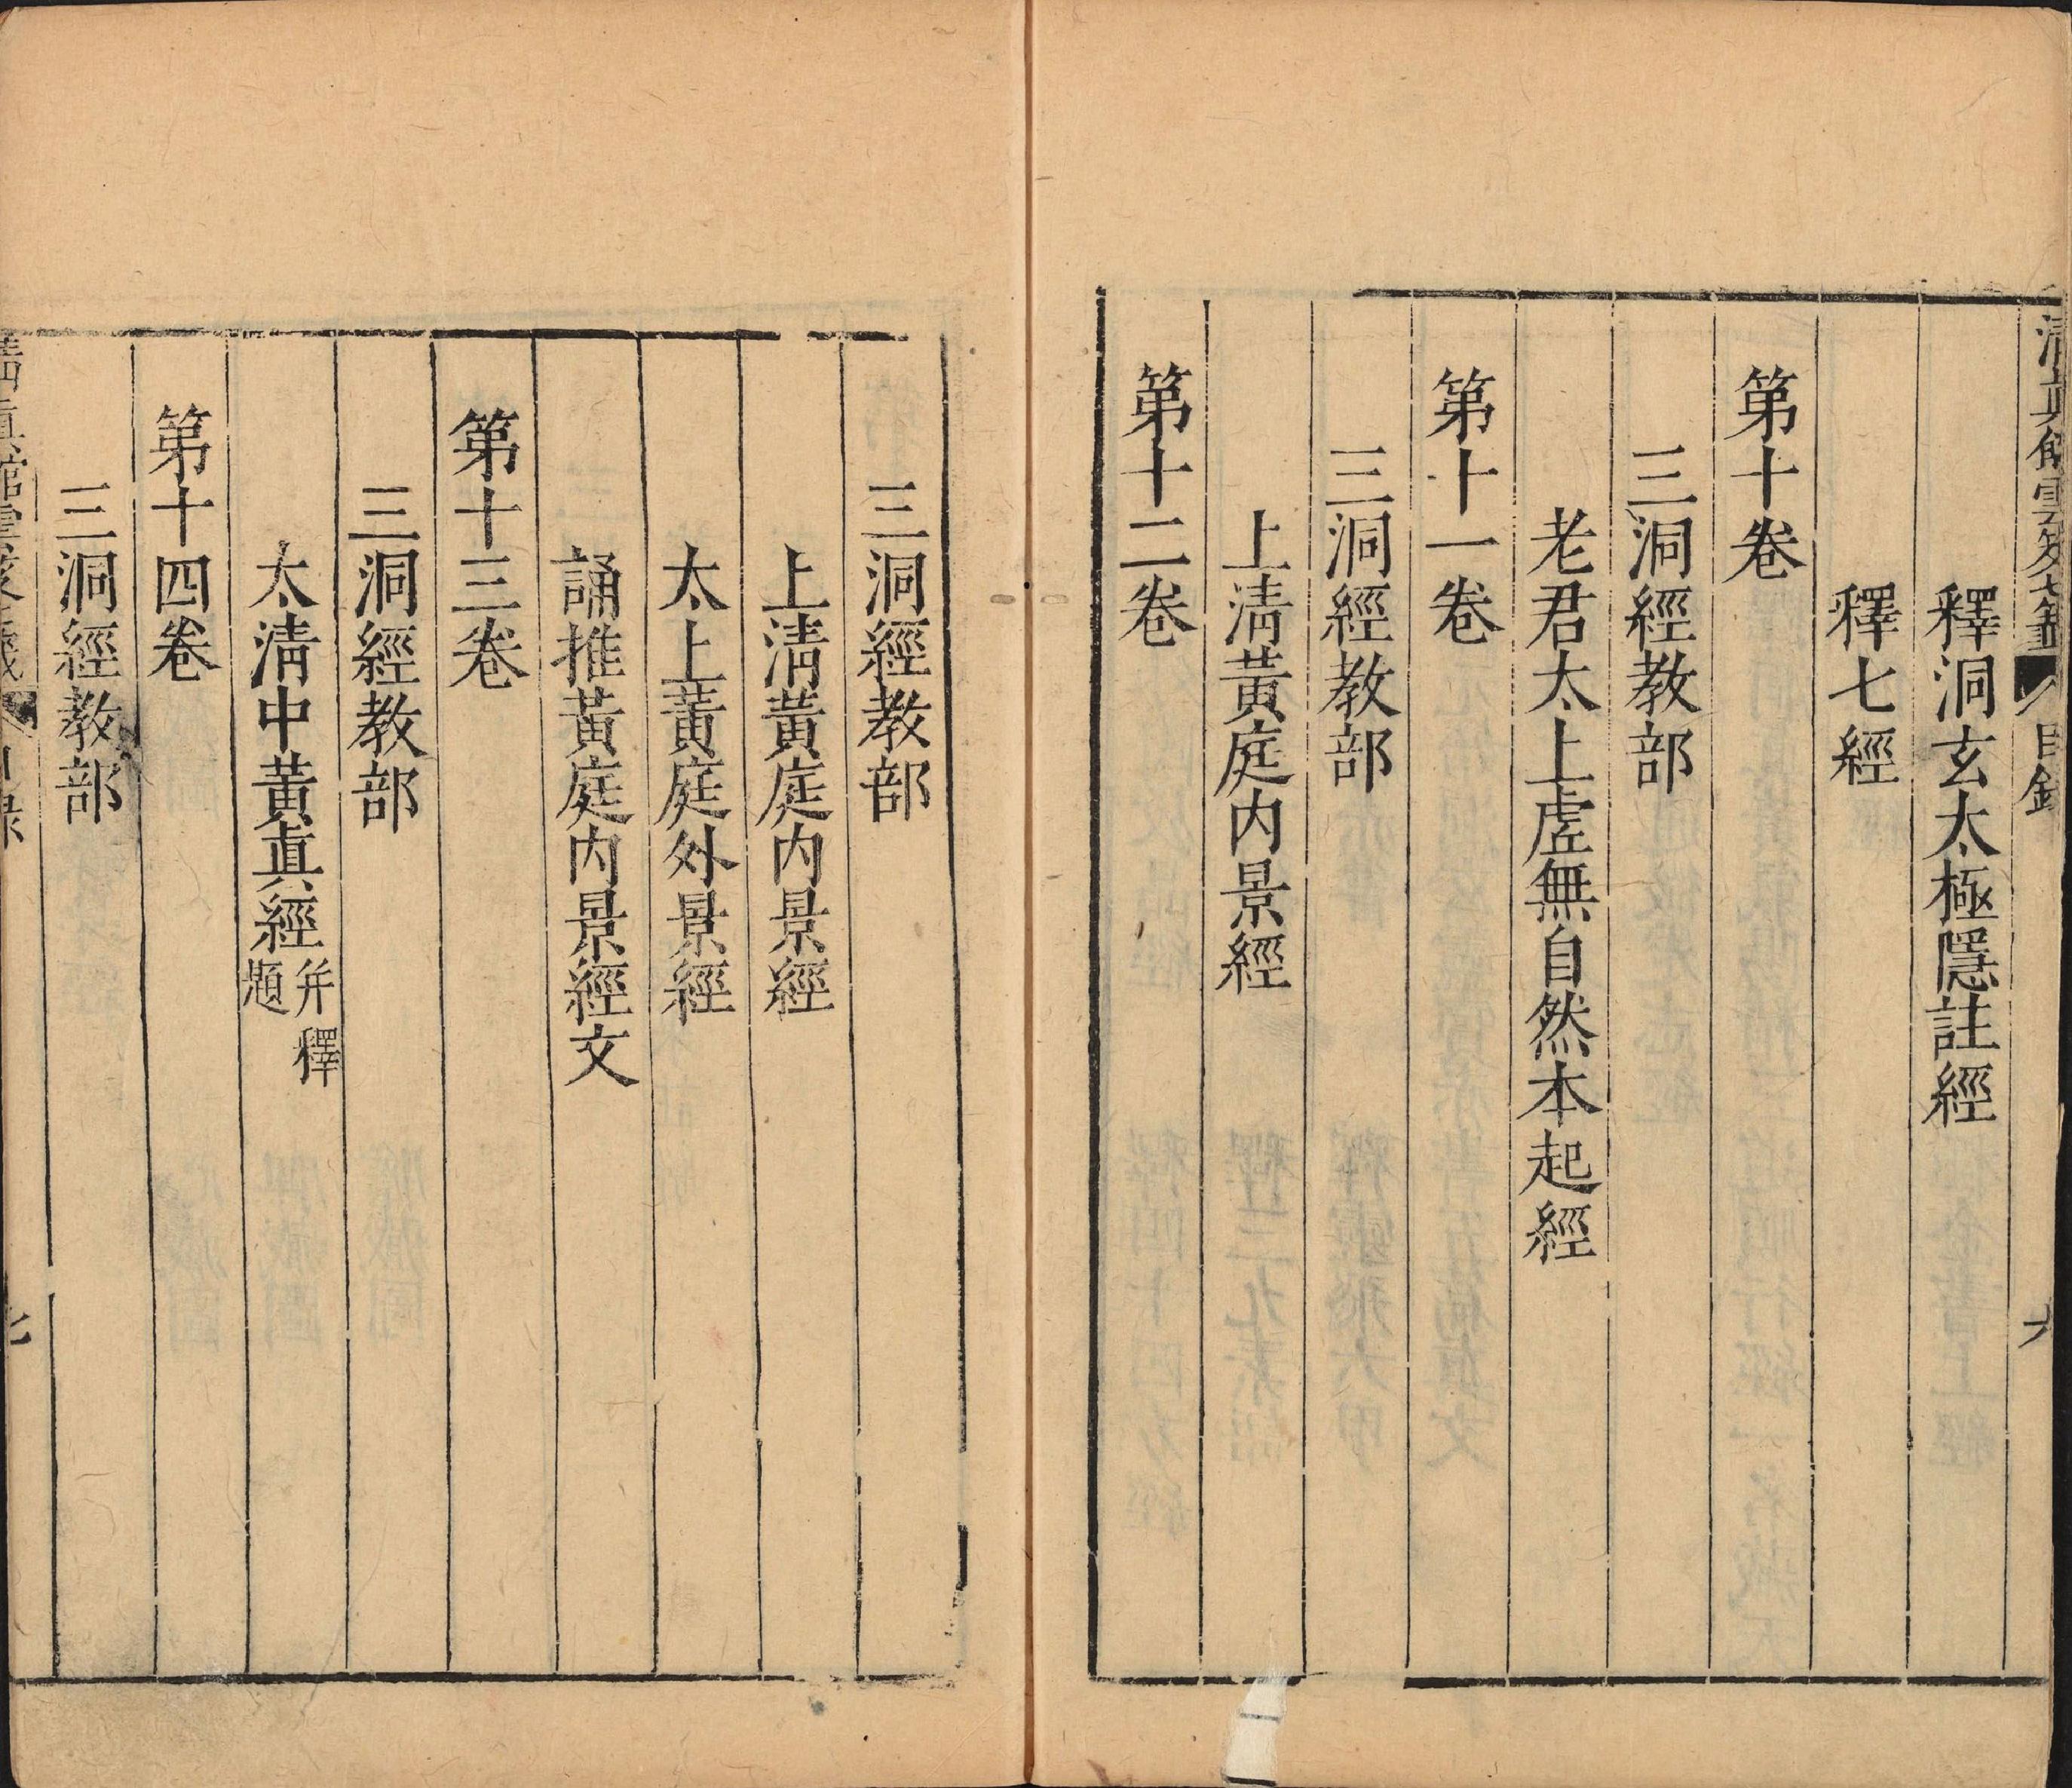 釋洞玄太極隱註經
釋七經
第十卷
三洞經教部
老君太上虛無自然本起經
第十一卷
三洞經教部
上淸黃庭內景經
第十二卷
三洞經教部
上淸黃庭內景經
太上黃庭外景經
誦推黃庭內景經文
第十三卷
三洞經教部
太淸中黃眞經并釋題
第十四卷
三洞經教部